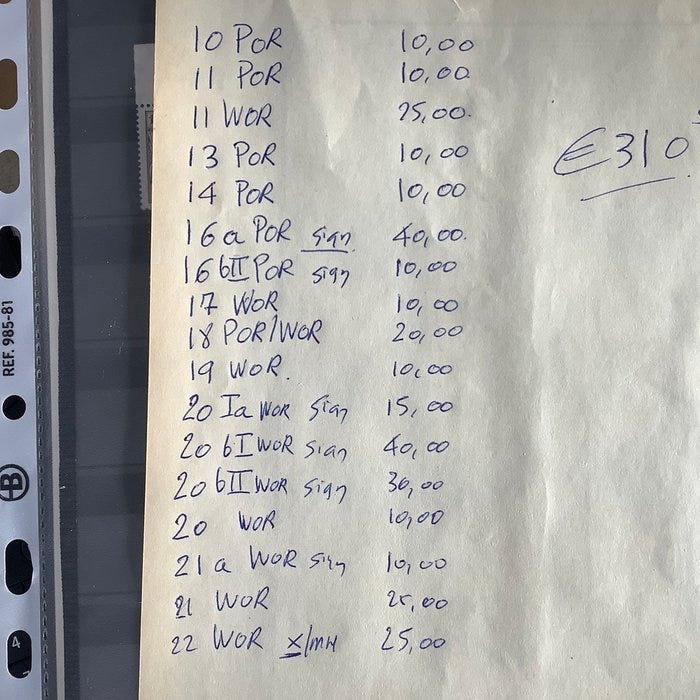 10 POR 10,00
11 POR 10,00
11 WOR 25,00.
13 POR 10,00
14 POR 10,00
16 a POR sign 40,00.
16 bII POR sign 10,00
17 WOR 10,00
18 POR/WOR 20,00
19 WOR. 10,00
20 Ia WOR sign 15,00
20 bI WOR sign 40,00
20 bII WOR sign 30,00
20 WOR 10,00
21 a WOR sign 10,00
21 WOR 25,00
22 WOR x/MH 25,00
€310
REF. 985-81
B
4